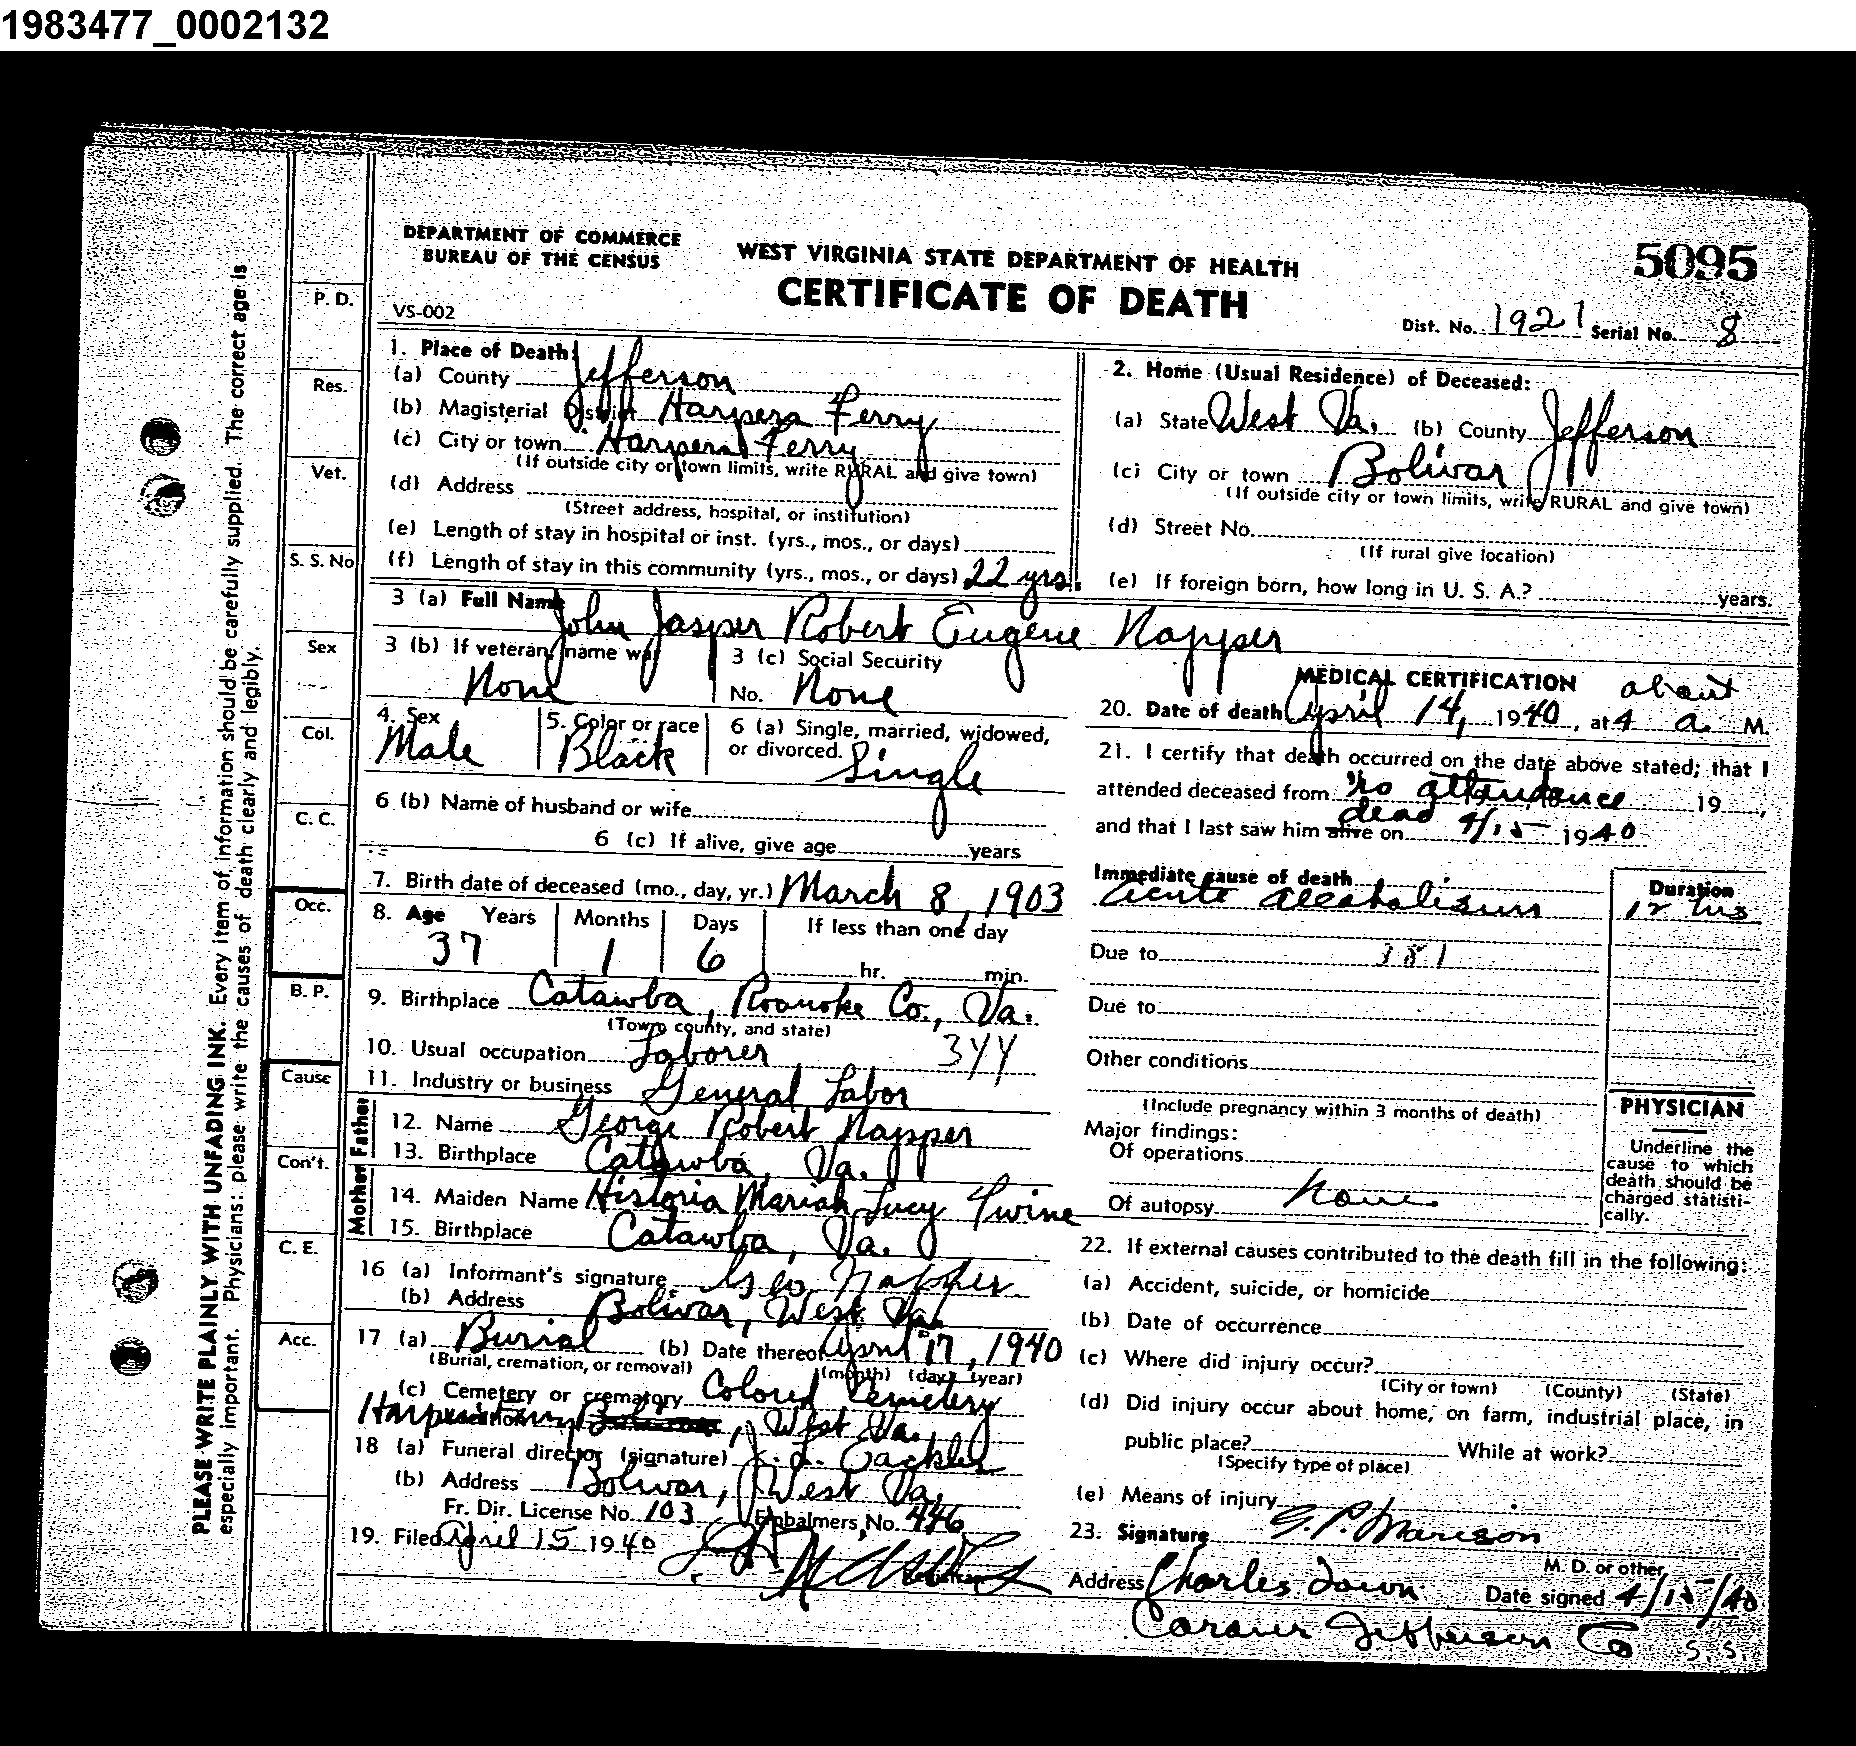 1983477_0002132
DEPARTMENT OF COMMERCE
BUREAU OF THE CENSUS
WEST VIRGINIA STATE DEPARTMENT OF HEALTH
CERTIFICATE OF DEATH
5095
VS-002
Dist. No. 1921 Serial No. 8
1. Place of Death:
(a) County Jefferson
(b) Magisterial District Harpers Ferry
(c) City or town Harpers Ferry
(If outside city or town limits, write RURAL and give town)
(d) Address
(Street address, hospital, or institution)
(e) Length of stay in hospital or inst. (yrs., mos., or days)
(f) Length of stay in this community (yrs., mos., or days) 22 yrs.
2. Home (Usual Residence) of Deceased:
(a) State West Va. (b) County Jefferson
(c) City or town Bolivar
(If outside city or town limits, write RURAL and give town)
(d) Street No.
(If rural give location)
(e) If foreign born, how long in U. S. A.? years.
3 (a) Full Name John Jasper Robert Eugene Napper
3 (b) If veteran, name war None
3 (c) Social Security
No. None
4. Sex Male
5. Color or race Black
6 (a) Single, married, widowed,
or divorced. Single
6 (b) Name of husband or wife
6 (c) If alive, give age years
7. Birth date of deceased (mo., day, yr.) March 8, 1903
8. Age Years Months Days If less than one day
37 1 6 hr. min.
9. Birthplace Catawba, Roanoke Co., Va.
(Town, county, and state)
10. Usual occupation Laborer 344
11. Industry or business General Labor
Father
12. Name George Robert Napper
13. Birthplace Catawba, Va.
Mother
14. Maiden Name Historia Mariah Lucy Twine
15. Birthplace Catawba, Va.
16 (a) Informant's signature Geo Napper
(b) Address Bolivar, West Va.
17 (a) Burial (b) Date thereof April 17, 1940
(Burial, cremation, or removal) (month) (day) (year)
(c) Cemetery or crematory Colored Cemetery
Harpers Ferry Bolivar, West Va.
18 (a) Funeral director (signature) J. L. Eackles
(b) Address Bolivar, West Va.
Fr. Dir. License No. 103 Embalmers No. 446
19. Filed April 15 1940
MEDICAL CERTIFICATION
about
20. Date of death April 14, 1940, at 4 a. M.
21. I certify that death occurred on the date above stated; that I
attended deceased from no attendance 19 ,
dead
and that I last saw him alive on 4/15 1940
Immediate cause of death Duration
acute alcoholism 12 hrs
Due to 381
Due to
Other conditions
(Include pregnancy within 3 months of death)
Major findings:
Of operations
Of autopsy None
PHYSICIAN
Underline the
cause to which
death should be
charged statisti-
cally.
22. If external causes contributed to the death fill in the following:
(a) Accident, suicide, or homicide
(b) Date of occurrence
(c) Where did injury occur?
(City or town) (County) (State)
(d) Did injury occur about home, on farm, industrial place, in
public place? While at work?
(Specify type of place)
(e) Means of injury
23. Signature G. P. Morison
M. D. or other
Address Charles Town Date signed 4/15/40
Coroner Jefferson Co
S. S.
P. D.
Res.
Vet.
S. S. No
Sex
Col.
C. C.
Occ.
B. P.
Cause
Con't.
C. E.
Acc.
PLEASE WRITE PLAINLY WITH UNFADING INK. Every item of information should be carefully supplied. The correct age is
especially important. Physicians: please write the causes of death clearly and legibly.